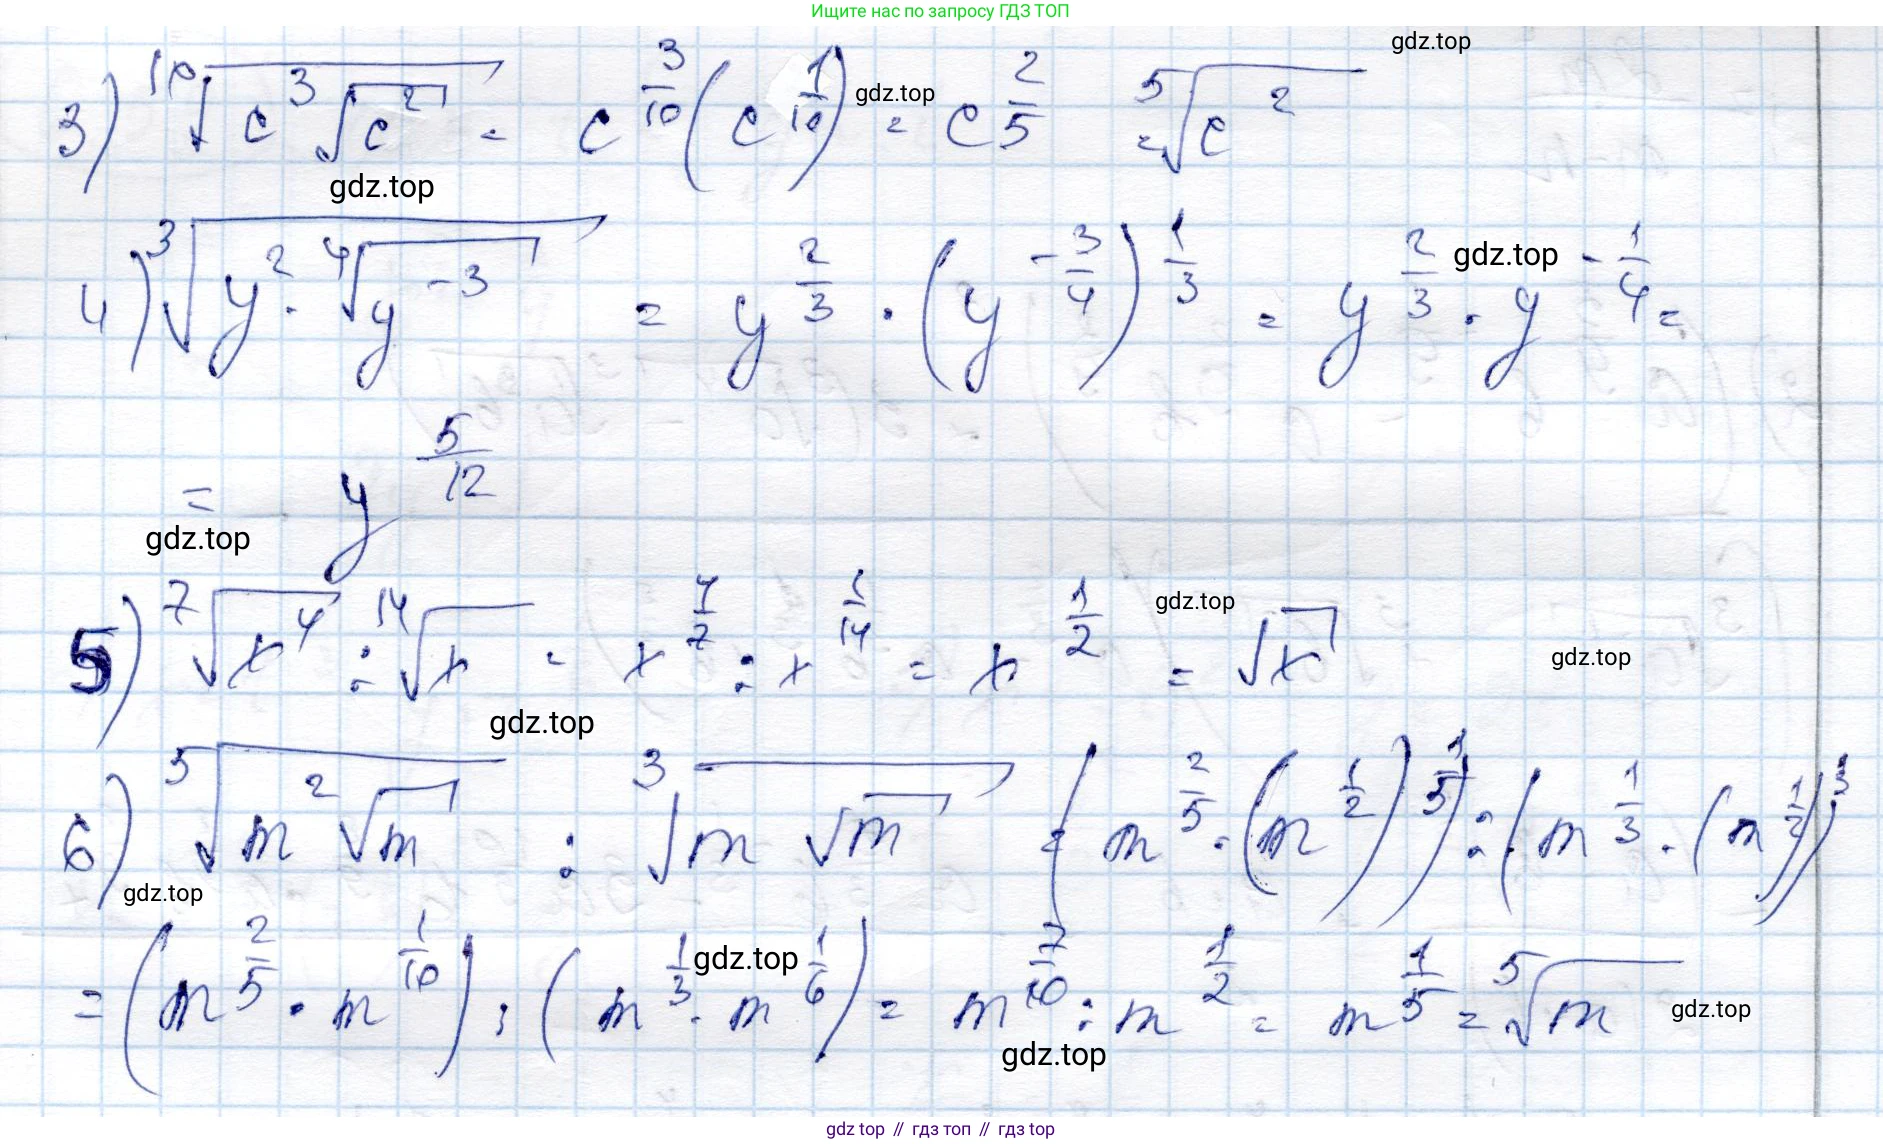 Ищите нас по запросу ГДЗ ТОП
gdz.top
3) ¹⁰√(c ³√(c²)) = c^(3/10) (c^(1/10)) = c^(2/5) = ⁵√(c²)
gdz.top
gdz.top
4) ³√(y² · ⁴√(y^(-3))) = y^(2/3) · (y^(-3/4))^(1/3) = y^(2/3) · y^(-1/4) =
gdz.top
= y^(5/12)
gdz.top
5) ⁷√(x⁴) : ¹⁴√x = x^(4/7) : x^(1/14) = x^(1/2) = √x
gdz.top
gdz.top
gdz.top
6) ⁵√(m ²√m) : ³√(m √m) = (m^(2/5) · (m^(1/2))^(1/5)) : (m^(1/3) · (m^(1/2))^(1/3))
gdz.top
= (m^(2/5) · m^(1/10)) : (m^(1/3) · m^(1/6)) = m^(7/10) : m^(1/2) = m^(1/5) = ⁵√m
gdz.top
gdz.top
gdz.top
gdz top // гдз топ // гдз top